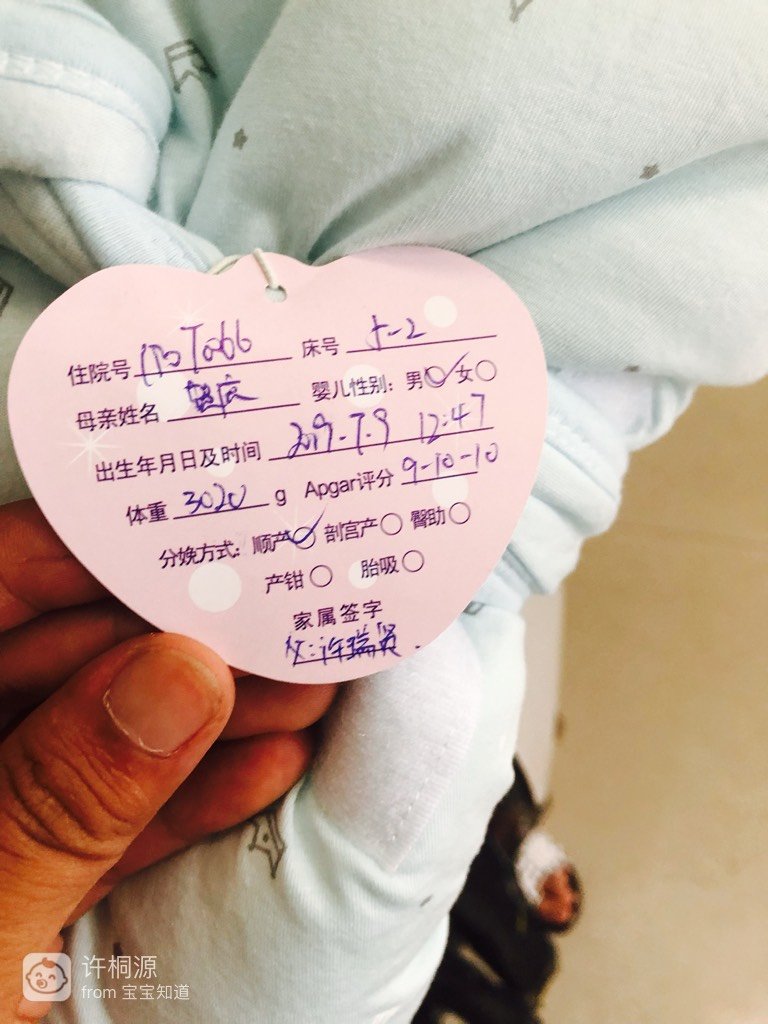 住院号 床号 5-2
母亲姓名 婴儿性别：男✓ 女
出生年月日及时间 2019-7-9 12:47
体重 3020 g Apgar评分 9-10-10
分娩方式：顺产✓ 剖宫产 臀助
产钳 胎吸
家属签字
父：许瑞贤.
许桐源
from 宝宝知道